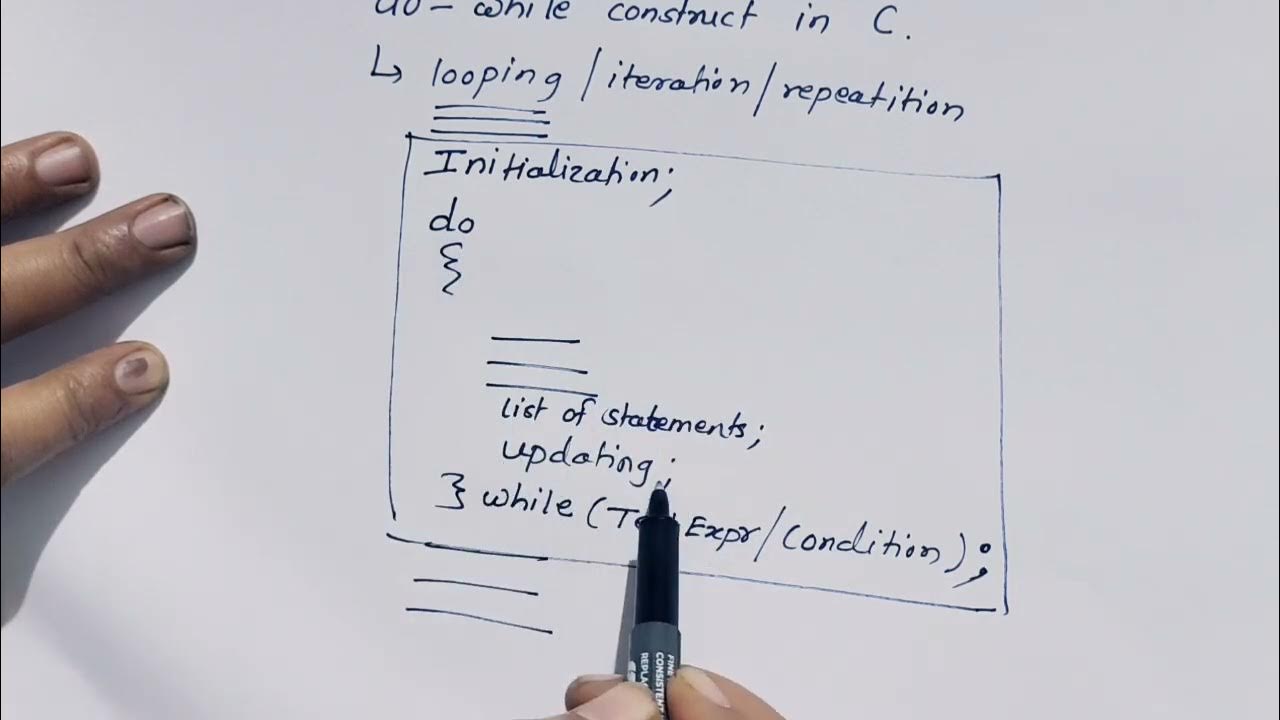 do-while construct in C.
↳ looping/iteration/repeatition
Initialization;
do
{
list of statements;
updating;
} while (Expr/Condition);
FINE
CONSISTENT